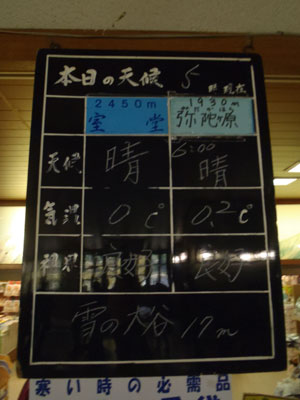 本日の天候 5 時現在
2450m 1930m
室堂 弥陀ヶ原
みだがはら
6:00
天候 晴 晴
気温 0℃ 0.2℃
視界 良好 良好
雪の大谷 17m
寒い時の必需品